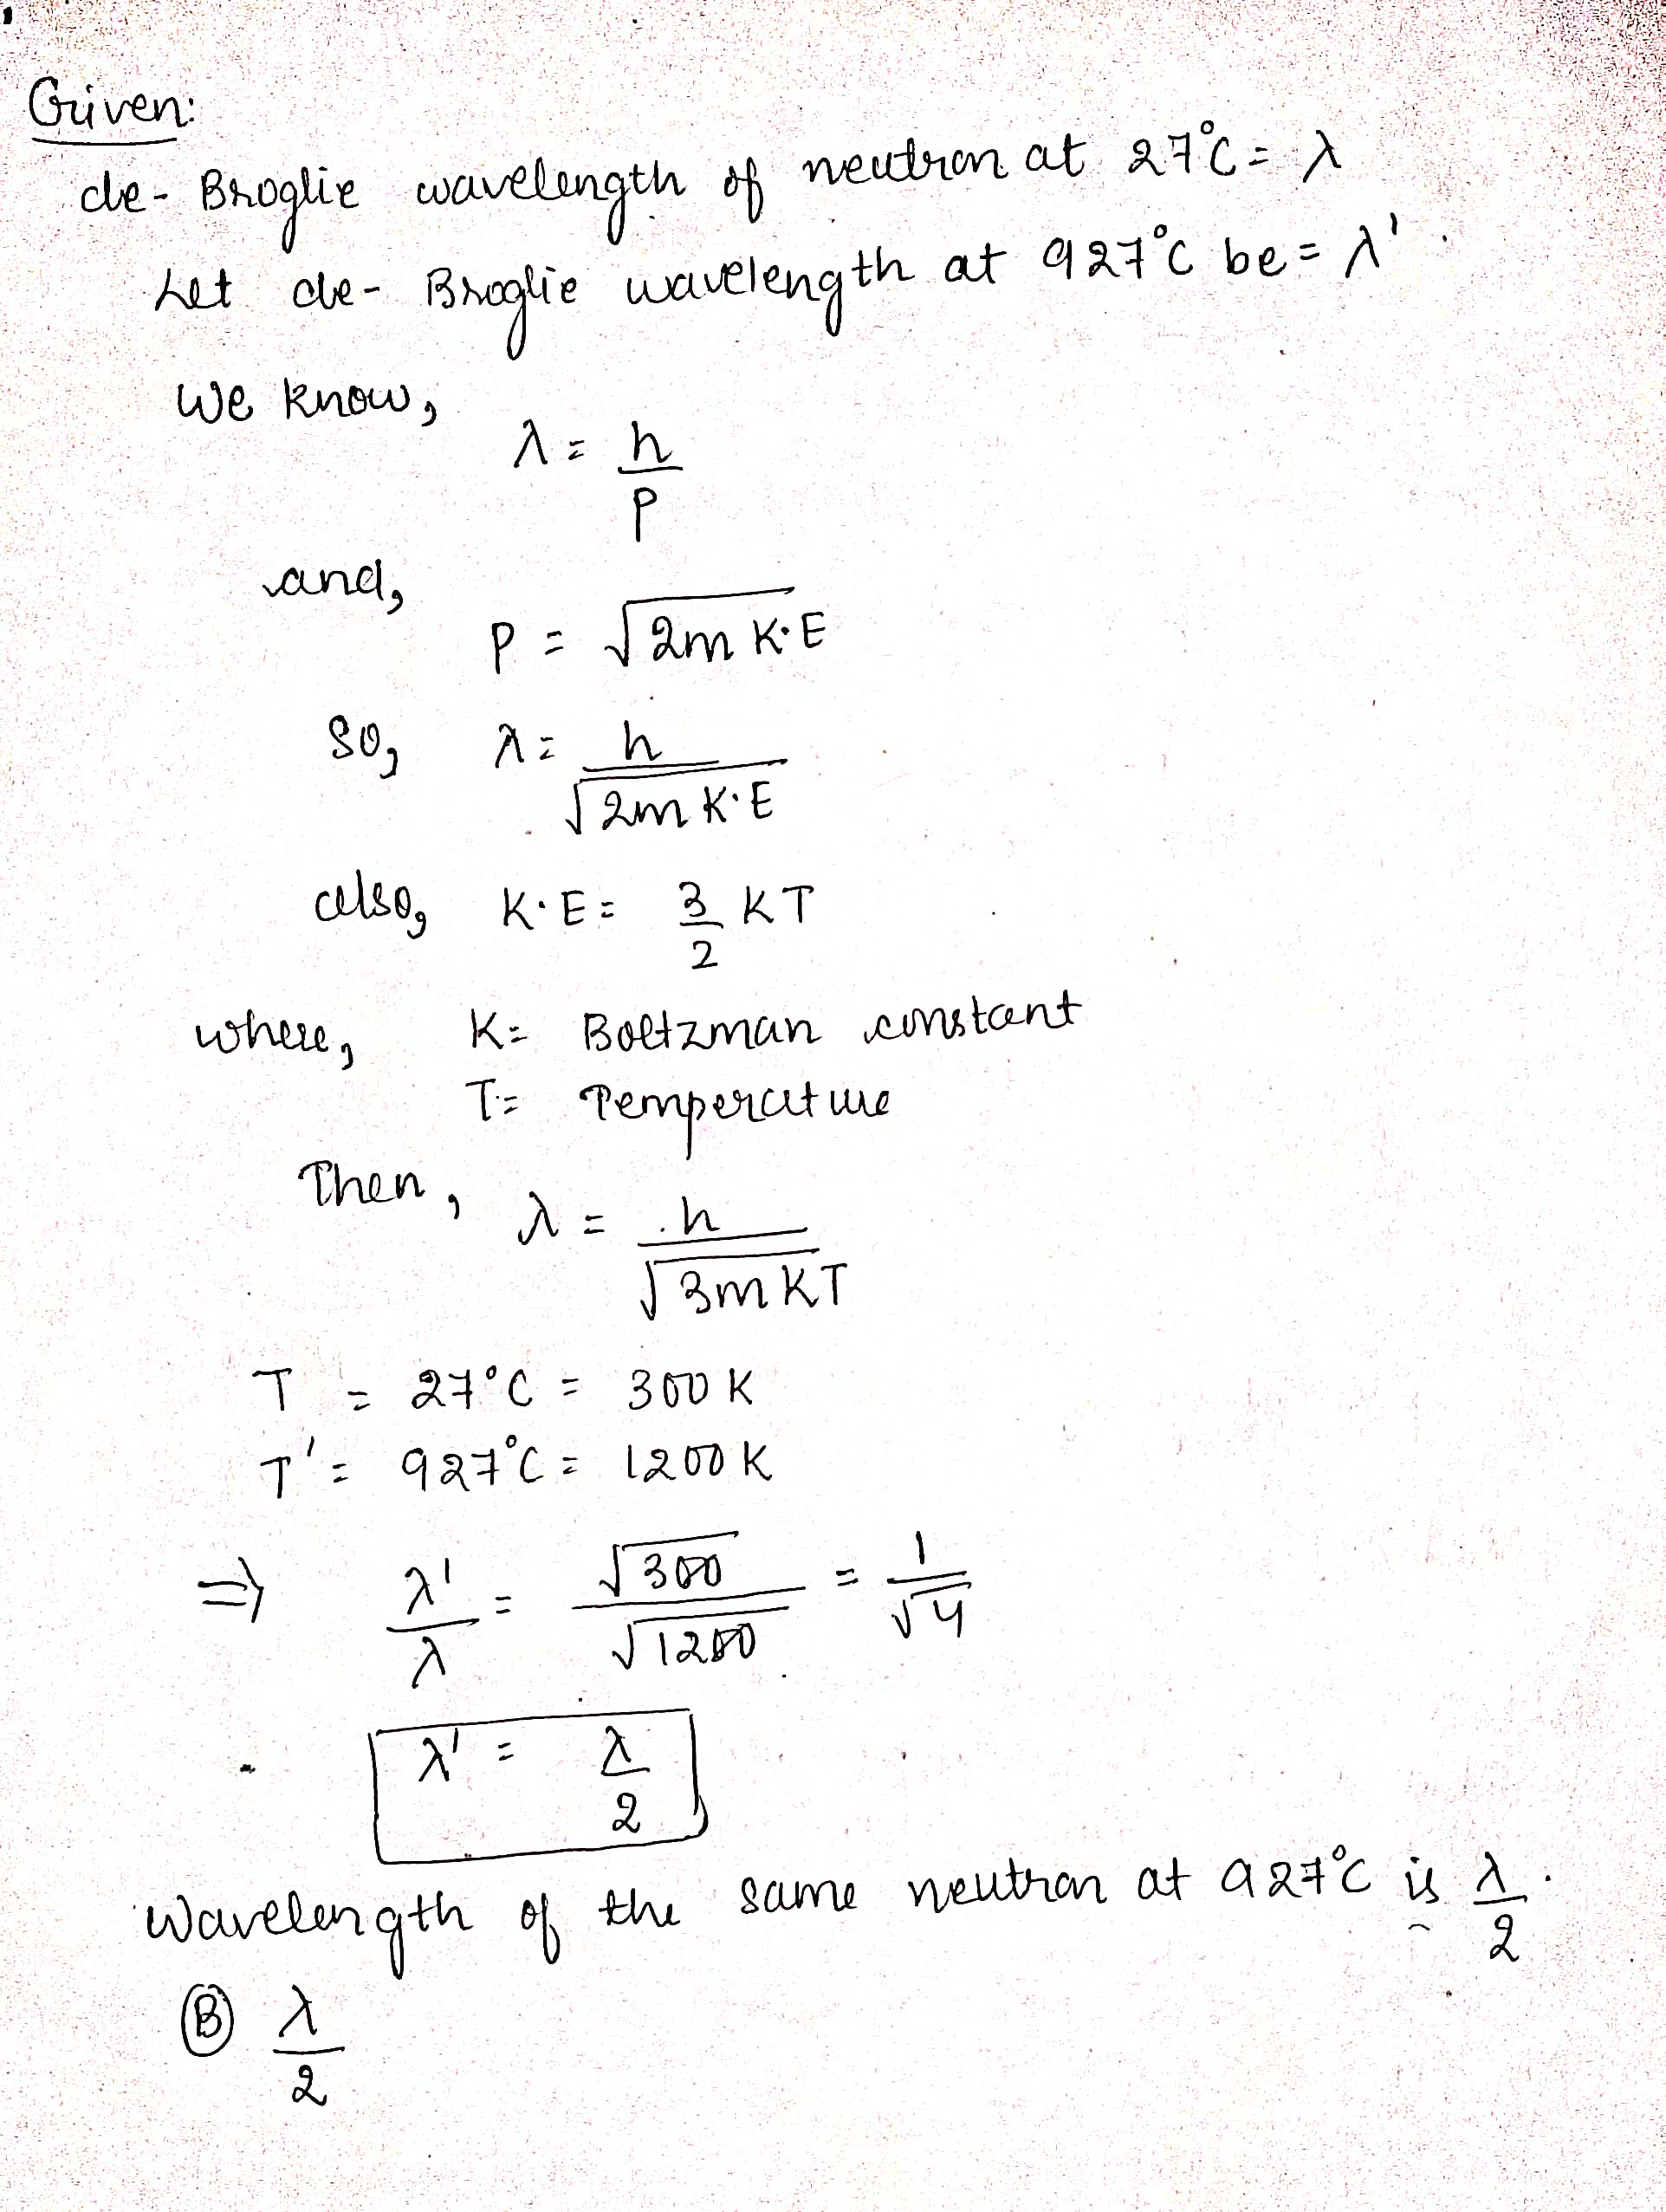 Given:
de-Broglie wavelength of neutron at 27°C = λ
Let de-Broglie wavelength at 927°C be = λ'.
We know,
λ = h/P
and,
P = √2m K·E
so, λ = h/√2m K·E
also, K·E = 3/2 KT
where, K = Boltzman constant
T = Temperature
Then, λ = h/√3mKT
T = 27°C = 300 K
T' = 927°C = 1200 K
⇒ λ'/λ = √300/√1200 = 1/√4
λ' = λ/2
Wavelength of the same neutron at 927°C is λ/2.
Ⓑ λ/2